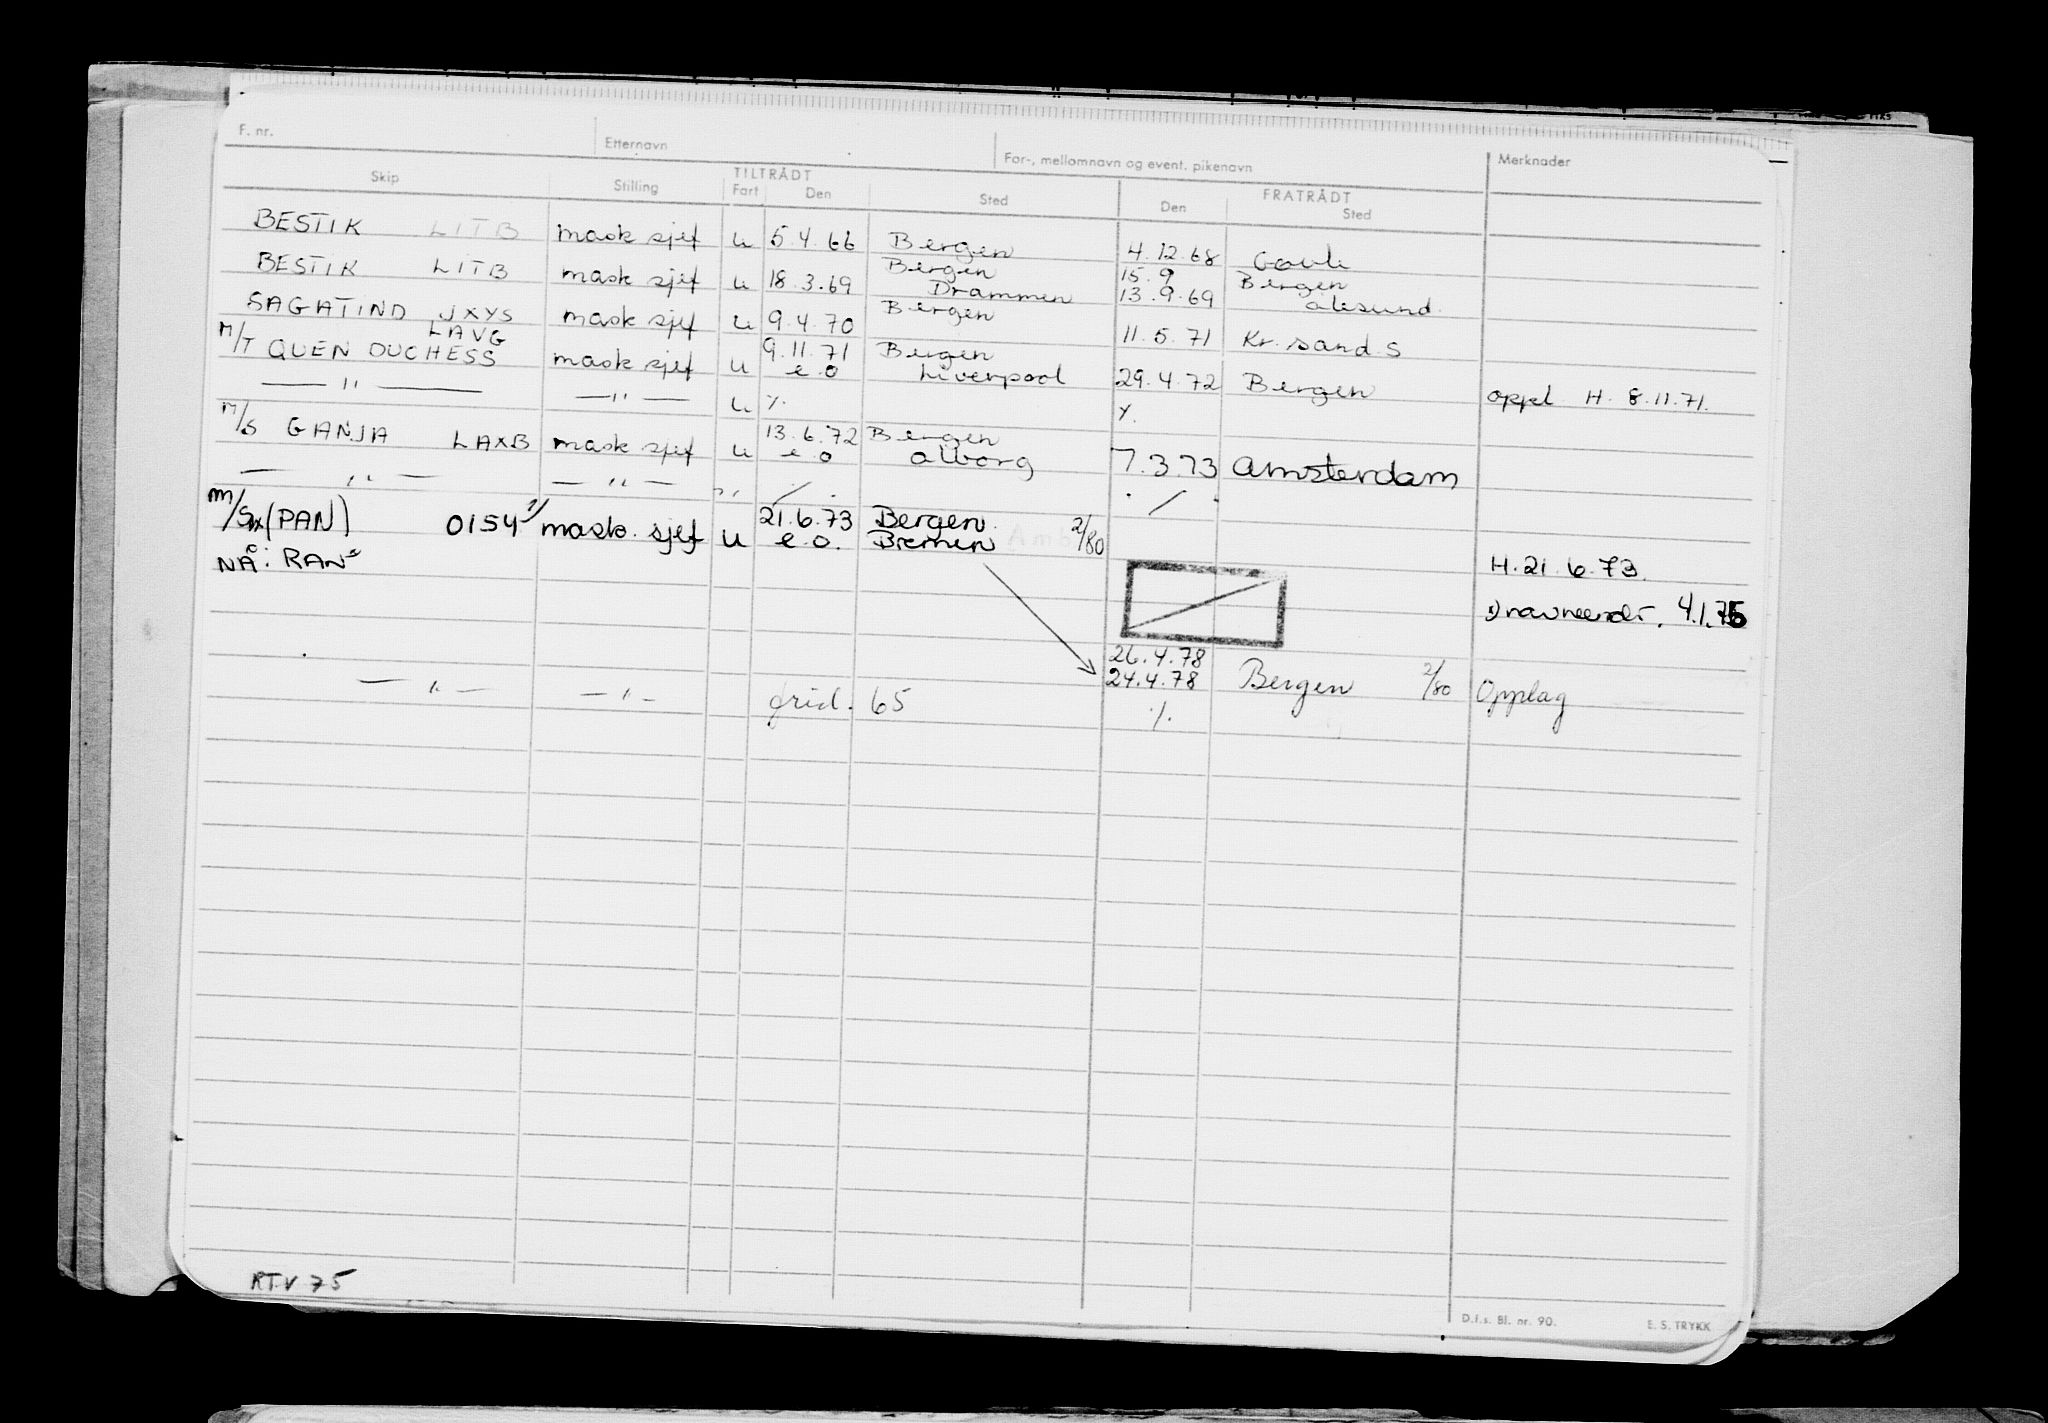 F. nr. Etternavn For-, mellomnavn og event. pikenavn Merknader
Skip Stilling TILTRÅDT FRATRÅDT
Fart Den Sted Den Sted
BESTIK LITB mask sjef u 5.4.66 Bergen 4.12.68
BESTIK LITB mask sjef u 18.3.69 Bergen 15.9 Bergen
Drammen 13.9.69 ålesund
SAGATIND JXYS mask sjef u 9.4.70 Bergen 11.5.71 Kr. sand. S
LAVG
M/T QUEN DUCHESS mask sjef u 9.11.71 Bergen
e.o Liverpool 29.4.72 Bergen oppl H. 8.11.71.
— " — — " — u %.
M/S GANJA LAXB mask sjef u 13.6.72 Bergen
e.o ålborg 7.3.73 Amsterdam
— " — — " — "
M/S (PAN) 0154 1/ mask. sjef u 21.6.73 Bergen.
e.o. Bremen 2/80
NÅ: RAN H. 21.6.73.
4.1.75
26.4.78
24.4.78 Bergen 2/80 Opplag
— " — — " — frid. 65 %.
RTV 75
D.f.s. Bl. nr. 90. E. S. TRYKK